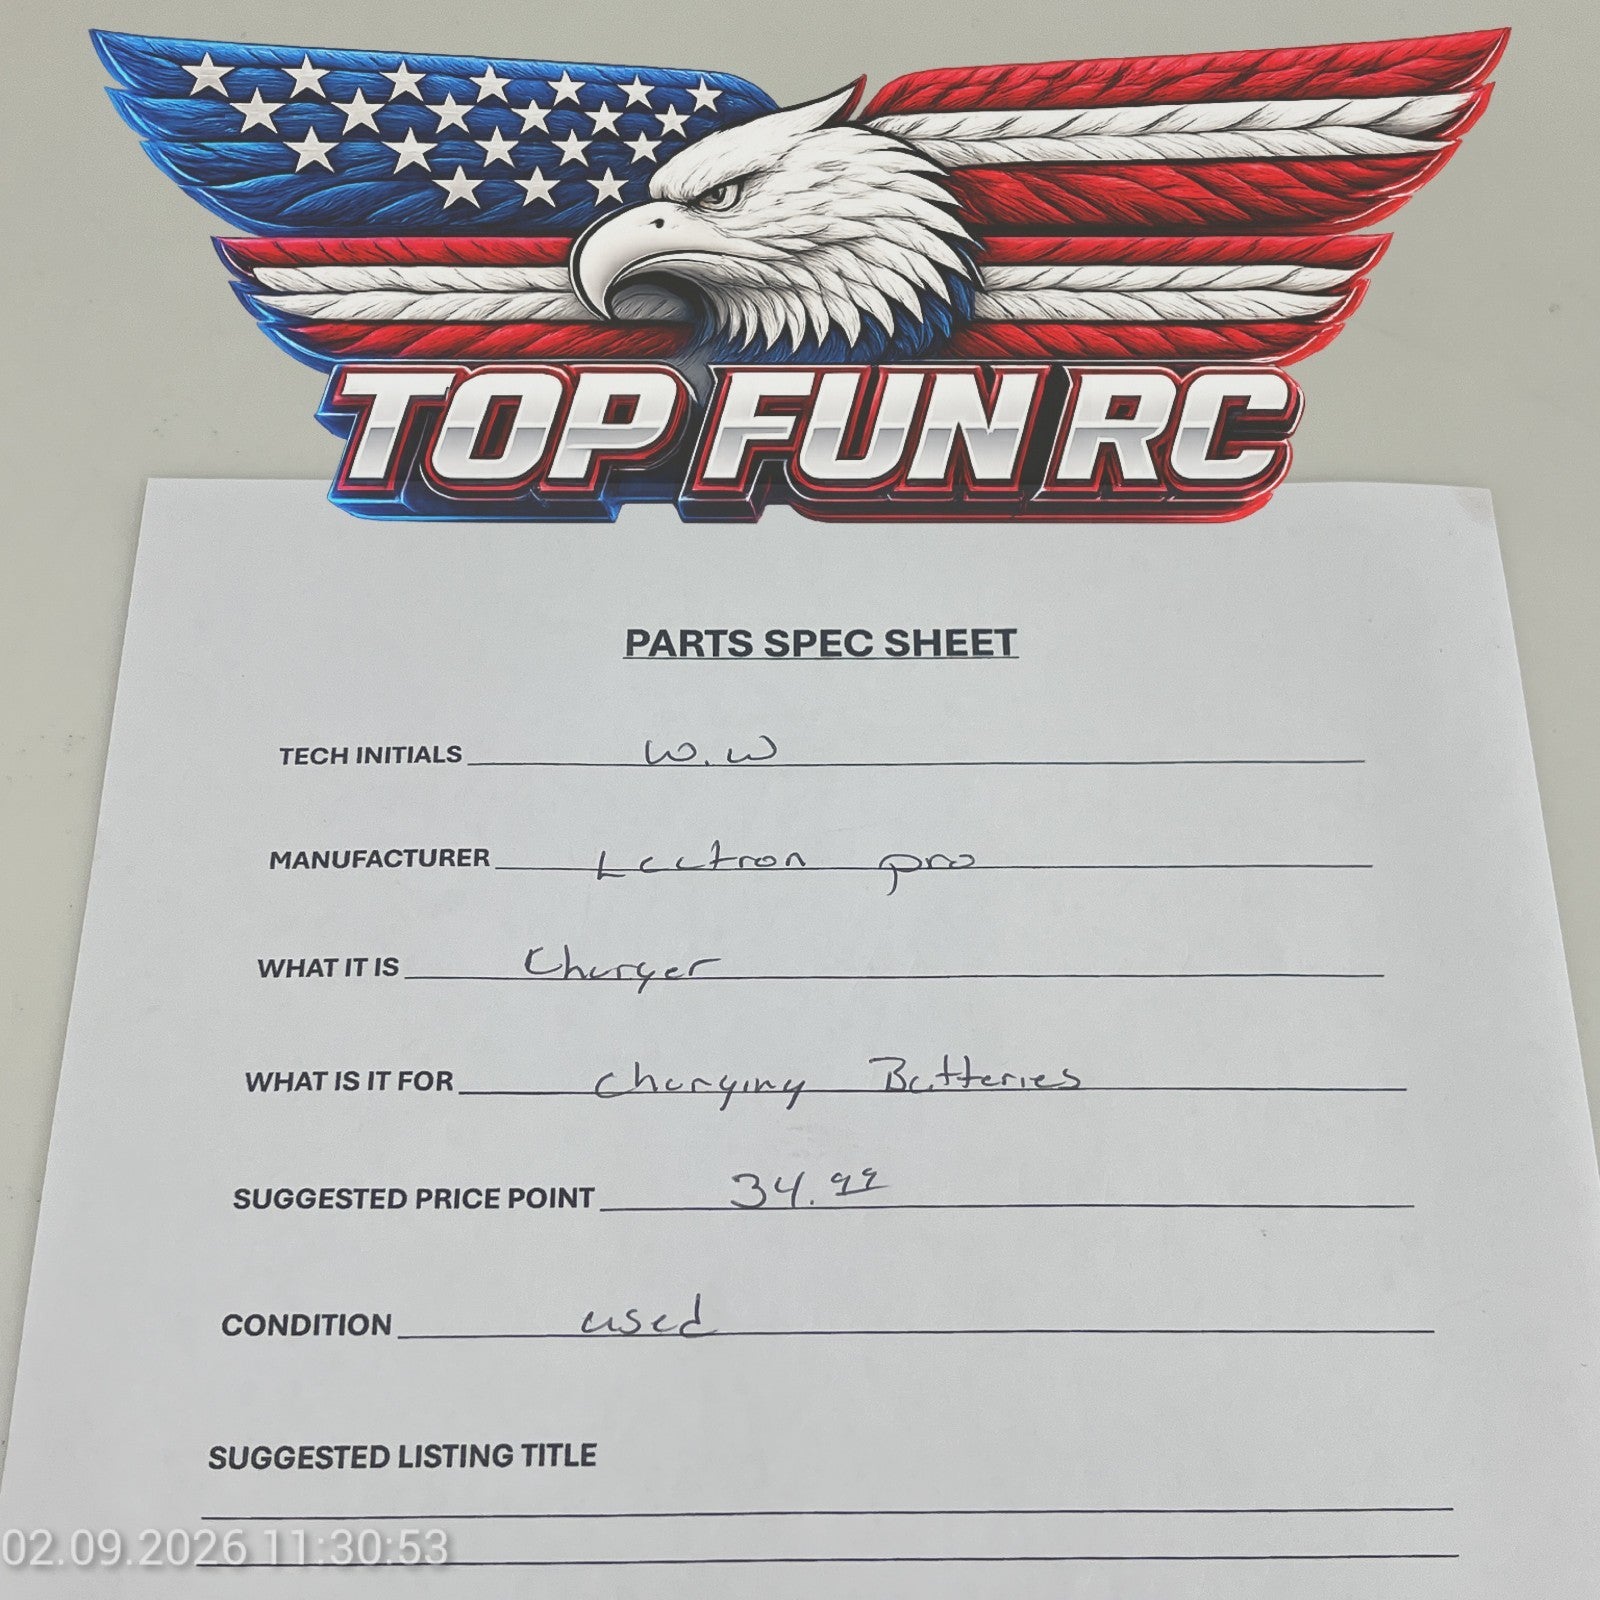 TOP FUN RC
PARTS SPEC SHEET
TECH INITIALS W.W
MANUFACTURER Lectron pro
WHAT IT IS Charger
WHAT IS IT FOR Charging Batteries
SUGGESTED PRICE POINT 34.99
CONDITION used
SUGGESTED LISTING TITLE
02.09.2026 11:30:53